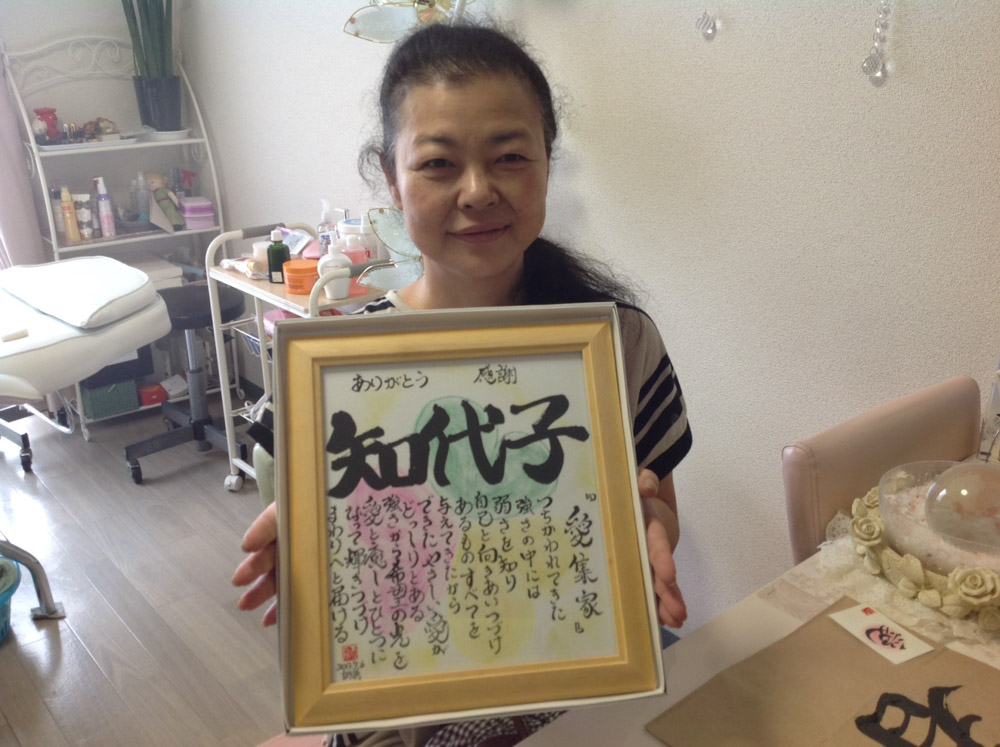 ありがとう 感謝
知代子
『愛集家』
つちかわれてきた
強さの中には
弱さを知り
自己と向きあいつづけ
あるものすべてを
与えてきた だから
できた やさしい愛が
どっしりとある
強さから希望の光を
愛と癒しとひとつに
なって輝きつづけ
まわりへと届ける